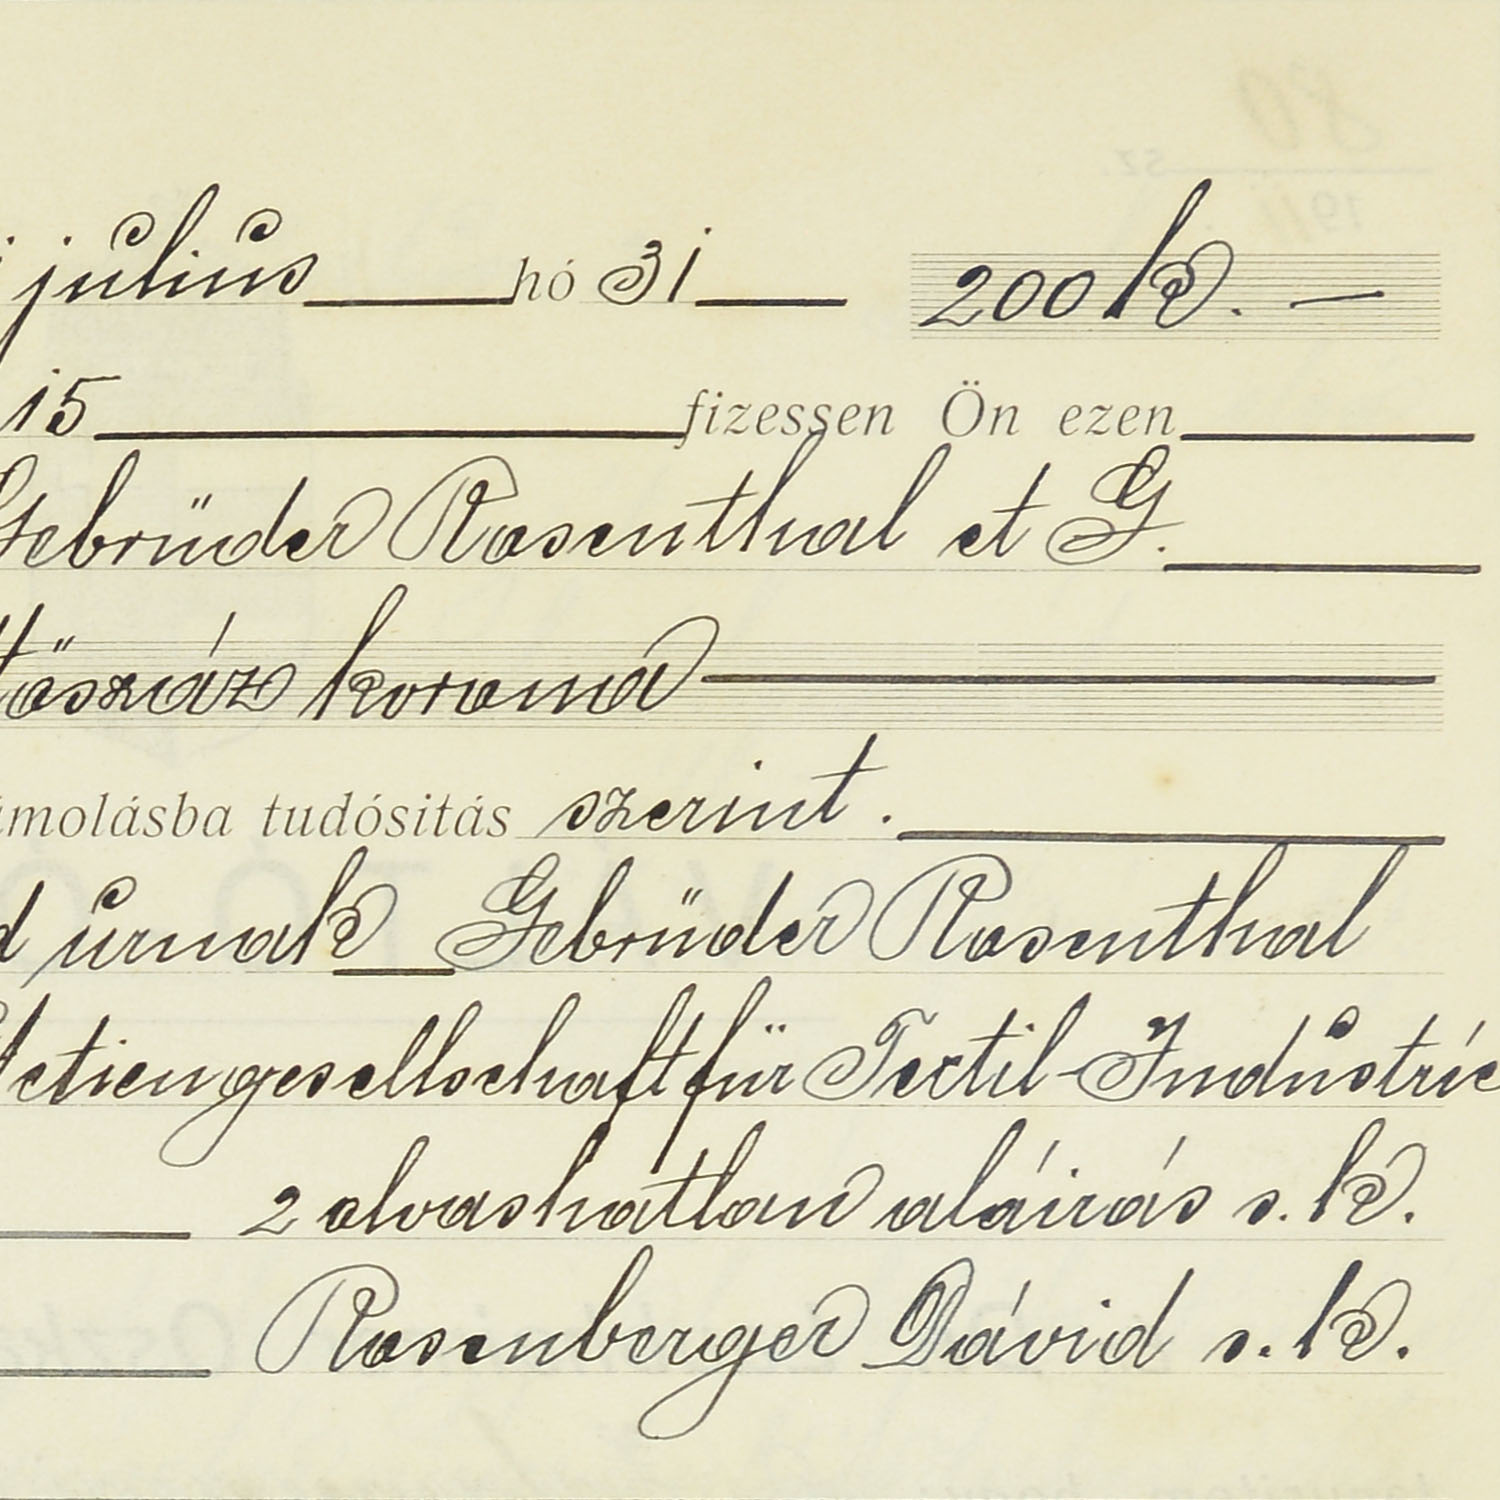 július hó 31 200 k. —
15 fizessen Ön ezen
Gebrüder Rosenthal et G.
tőszáz korona
ámolásba tudósitás szerint.
d úrnak Gebrüder Rosenthal
Actiengesellschaft für Textil-Industrie
2 olvashatlan aláirás s. k.
Rosenberger Dávid s. k.